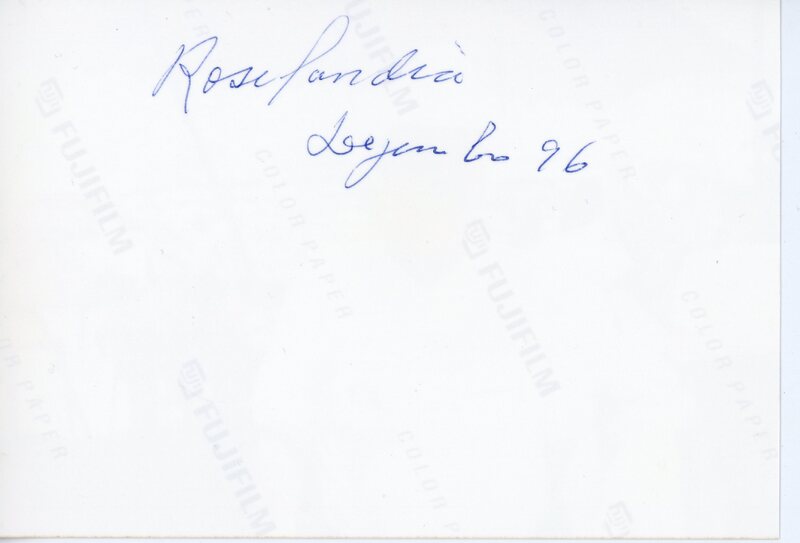 Roselandia
Dezembro 96
FUJIFILM
COLOR PAPER
FUJIFILM
COLOR PAPER
FUJIFILM
COLOR PAPER
COLOR PAPER
FUJIFILM
COLOR PAPER